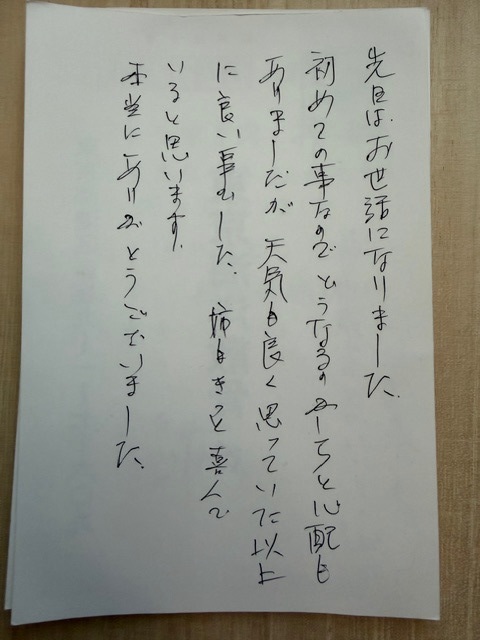 先日は、お世話になりました。
初めての事なのでどうなるのかしらと心配も
ありましたが 天気も良く思っていた以上
に良い事でした。 姉もきっと喜んで
いると思います。
本当にありがとうございました。